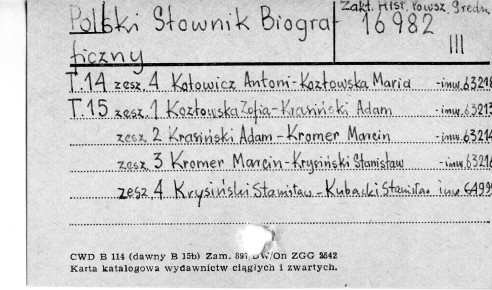 Polski Słownik Biogra
ficzny
Zakł. Hist. Powsz. Średn.
16982
III
T.14 zesz. 4 Kotowicz Antoni-Kozłowska Maria -inw.63218
T.15 zesz. 1 Kozłowska Zofia-Krasiński Adam -inw.63213
zesz. 2 Krasiński Adam-Kromer Marcin -inw.63214
zesz. 3 Kromer Marcin-Krysiński Stanisław -inw.63216
zesz. 4 Krysiński Stanisław-Kubacki Stanisław inw.
CWD B 114 (dawny B 15b) Zam. 897 DW/On ZGG 2542
Karta katalogowa wydawnictw ciągłych i zwartych.